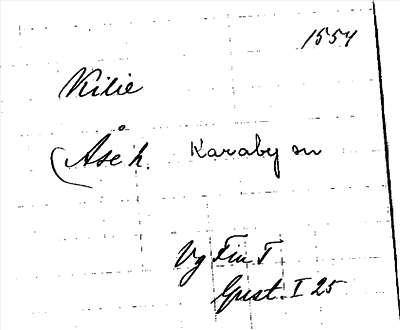 1554
Kilie
(Åse h. Karaby sn
Vg Fin T
Gust. I 25